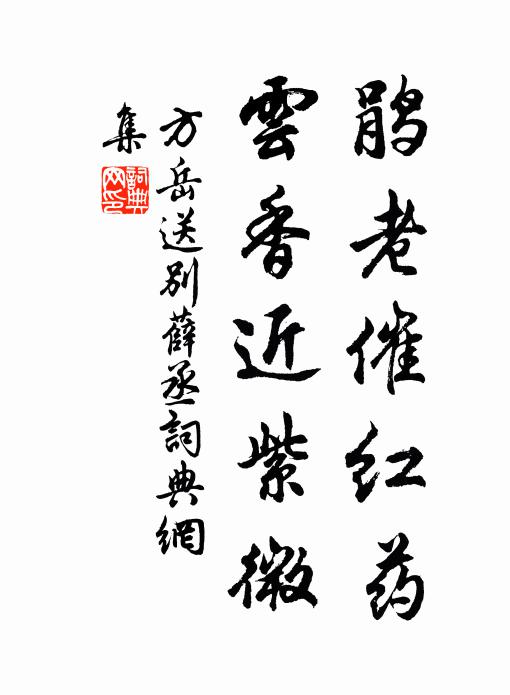 鹃老催红药
雲香近紫微
方岳送别薛丞詞典網
集
詞典
网印